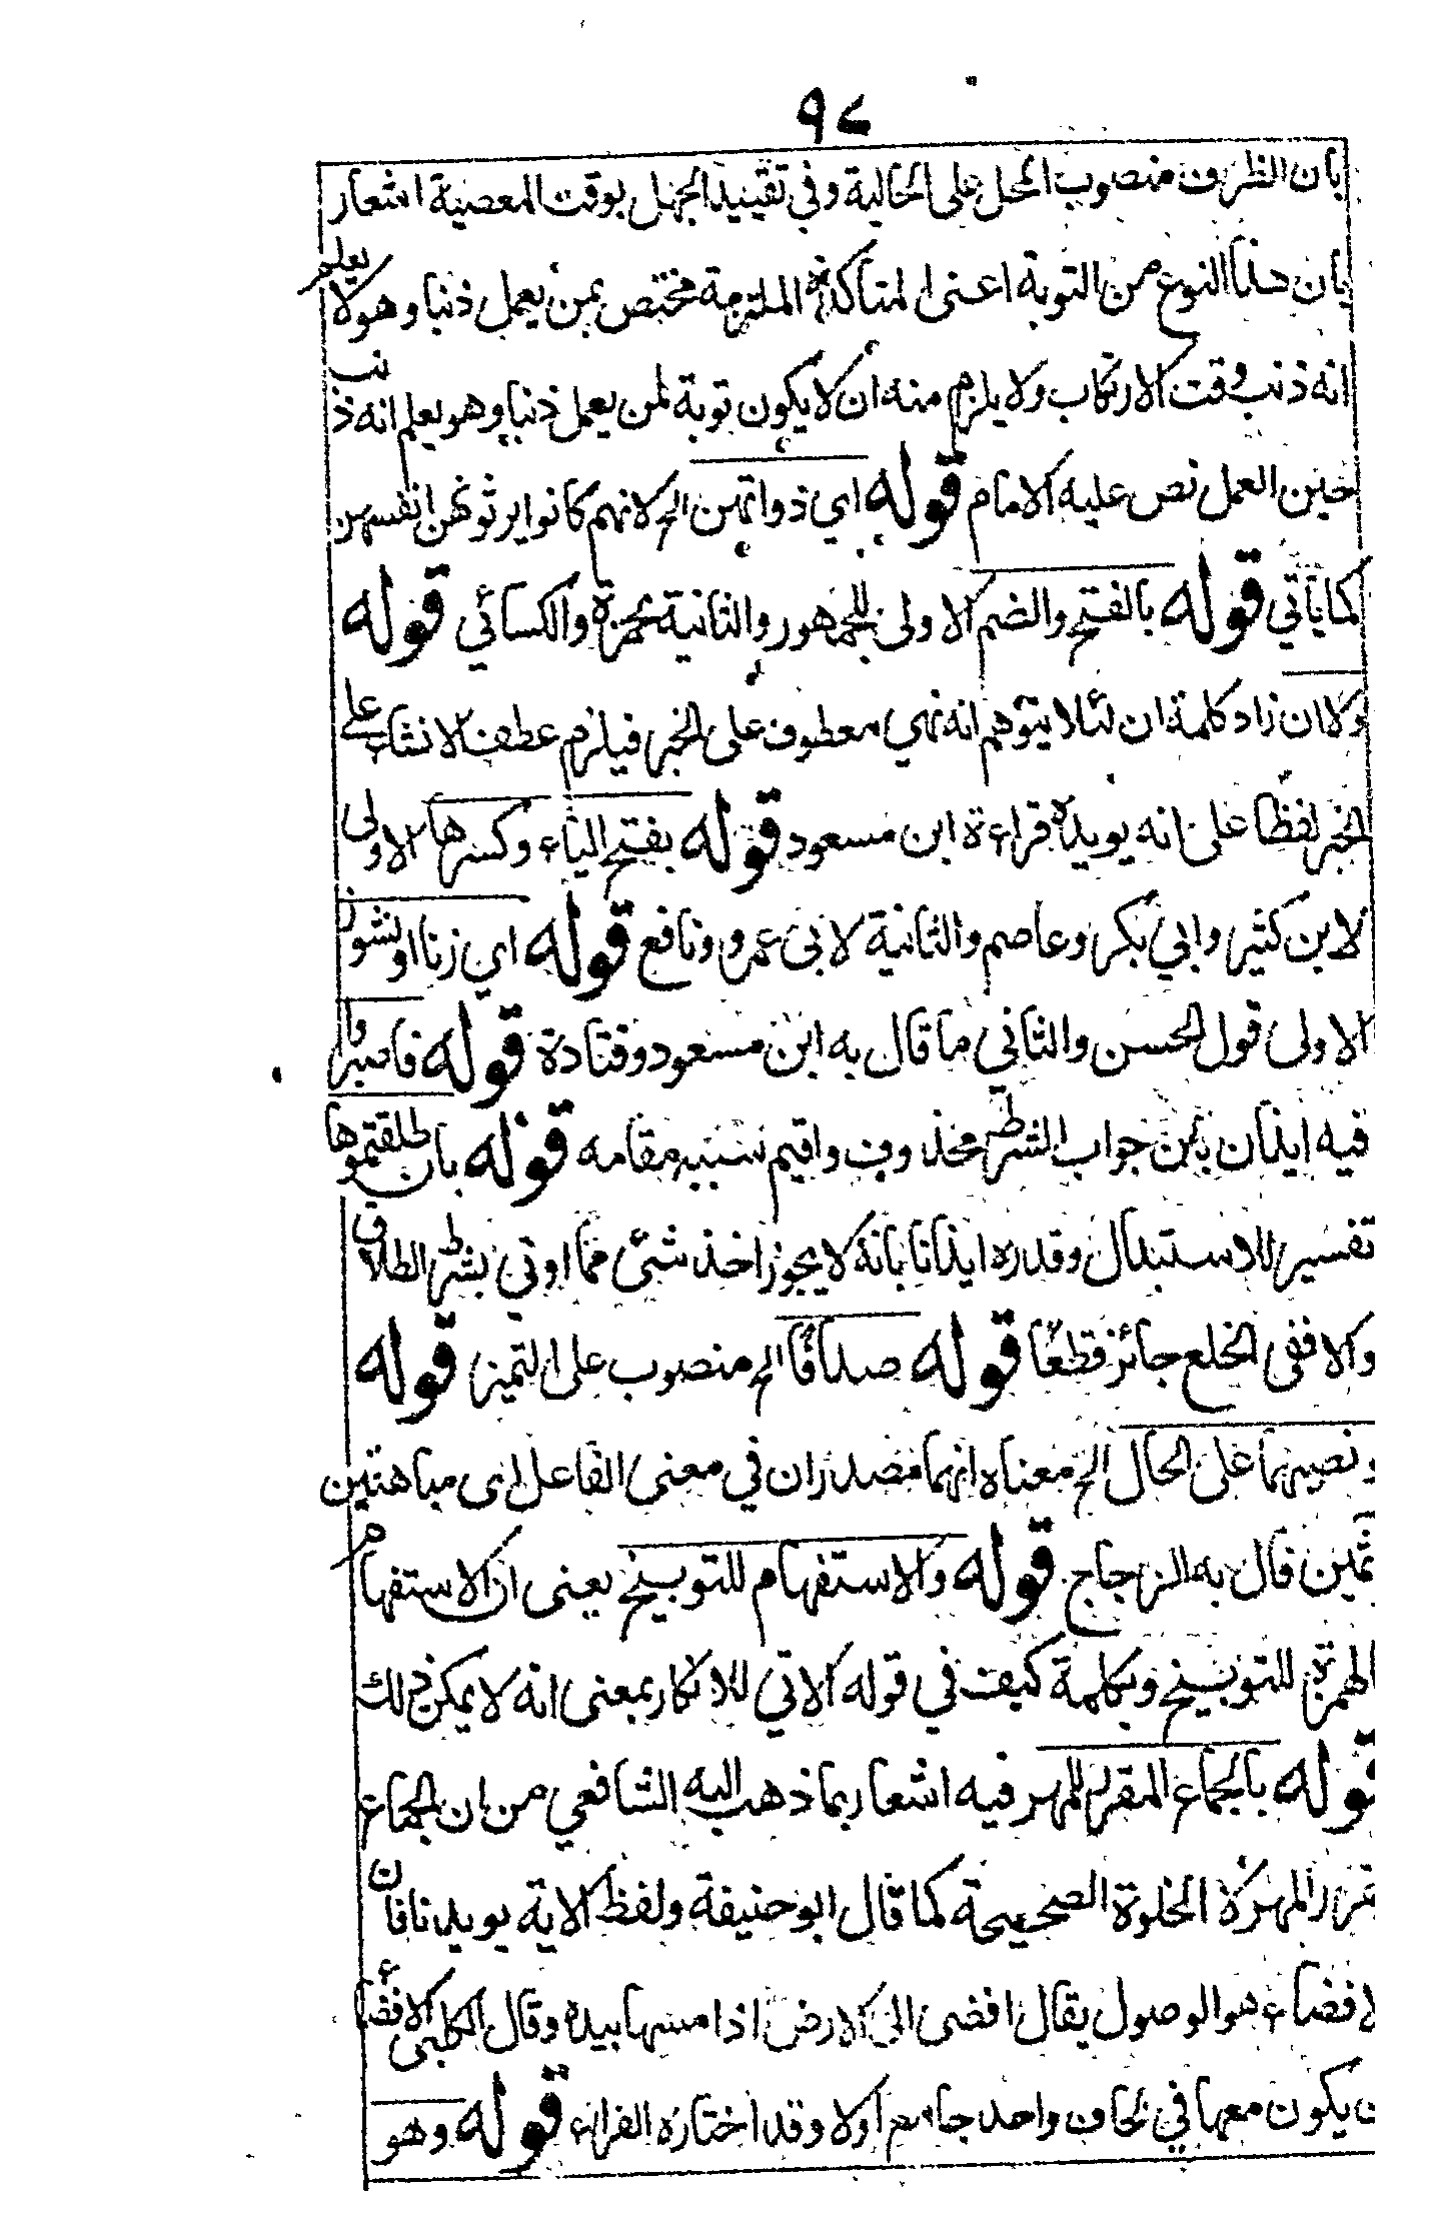 ٩٧
بان الظرف منصوب المحل على الحالية وفي تقييد الجهل بوقت المعصية اشعار
بان هذا النوع من التوبة اعنى المتاكدة الملتزمة مختص بمن يعمل ذنبا وهو لا يعلم
انه ذنب وقت الارتكاب ولا يلزم منه ان لا يكون توبة لمن يعمل ذنبا وهو يعلم انه ذنب
حين العمل نص عليه الامام قوله اي ذواتهن الخ لانهم كانوا يرثونهن انفسهن
كما يأتي قوله بالفتح والضم الاولى للجمهور والثانية لحمزة والكسائي قوله
ولا ان زاد كلمة ان لئلا يتوهم انه نهي معطوف على الخبر فيلزم عطف الانشاء على
الخبر لفظا على انه يويده قراءة ابن مسعود قوله بفتح الياء وكسرها الاولى
لابن كثير وابي بكر وعاصم والثانية لابى عمرو ونافع قوله اي زنا او نشوز
الاولى قول الحسن والثاني ما قال به ابن مسعود وقتادة قوله فاصبروا
فيه ايذان بان جواب الشرط محذوف واقيم سببه مقامه قوله بان طلقتموها
تفسير للاستبدال وقدره ايذانا بانه لا يجوز اخذ شئ مما اوتي بشرط الطلاق
والا ففى الخلع جائز قطعا قوله صداقا الخ منصوب على التميز قوله
ونصبهما على الحال الخ معناه انهما مصدران في معنى الفاعل اى مباهتين
آثمين قال به الزجاج قوله والاستفهام للتوبيخ يعنى ان الاستفهام
الهمزة للتوبيخ وبكلمة كيف في قوله الاتي للانكار بمعنى انه لا يمكن ذلك
قوله بالجماع المقرر للمهر فيه اشعار بما ذهب اليه الشافعي من ان الجماع
مقرر المهر لا الخلوة الصحيحة كما قال ابو حنيفة ولفظ الاية يويدنا فان
الافضاء هو الوصول يقال افضى الى الارض اذا مسها بيده وقال الكلبى الافضاء
ان يكون معها في لحاف واحد جامع اولا وقد اختاره الفراء قوله وهو